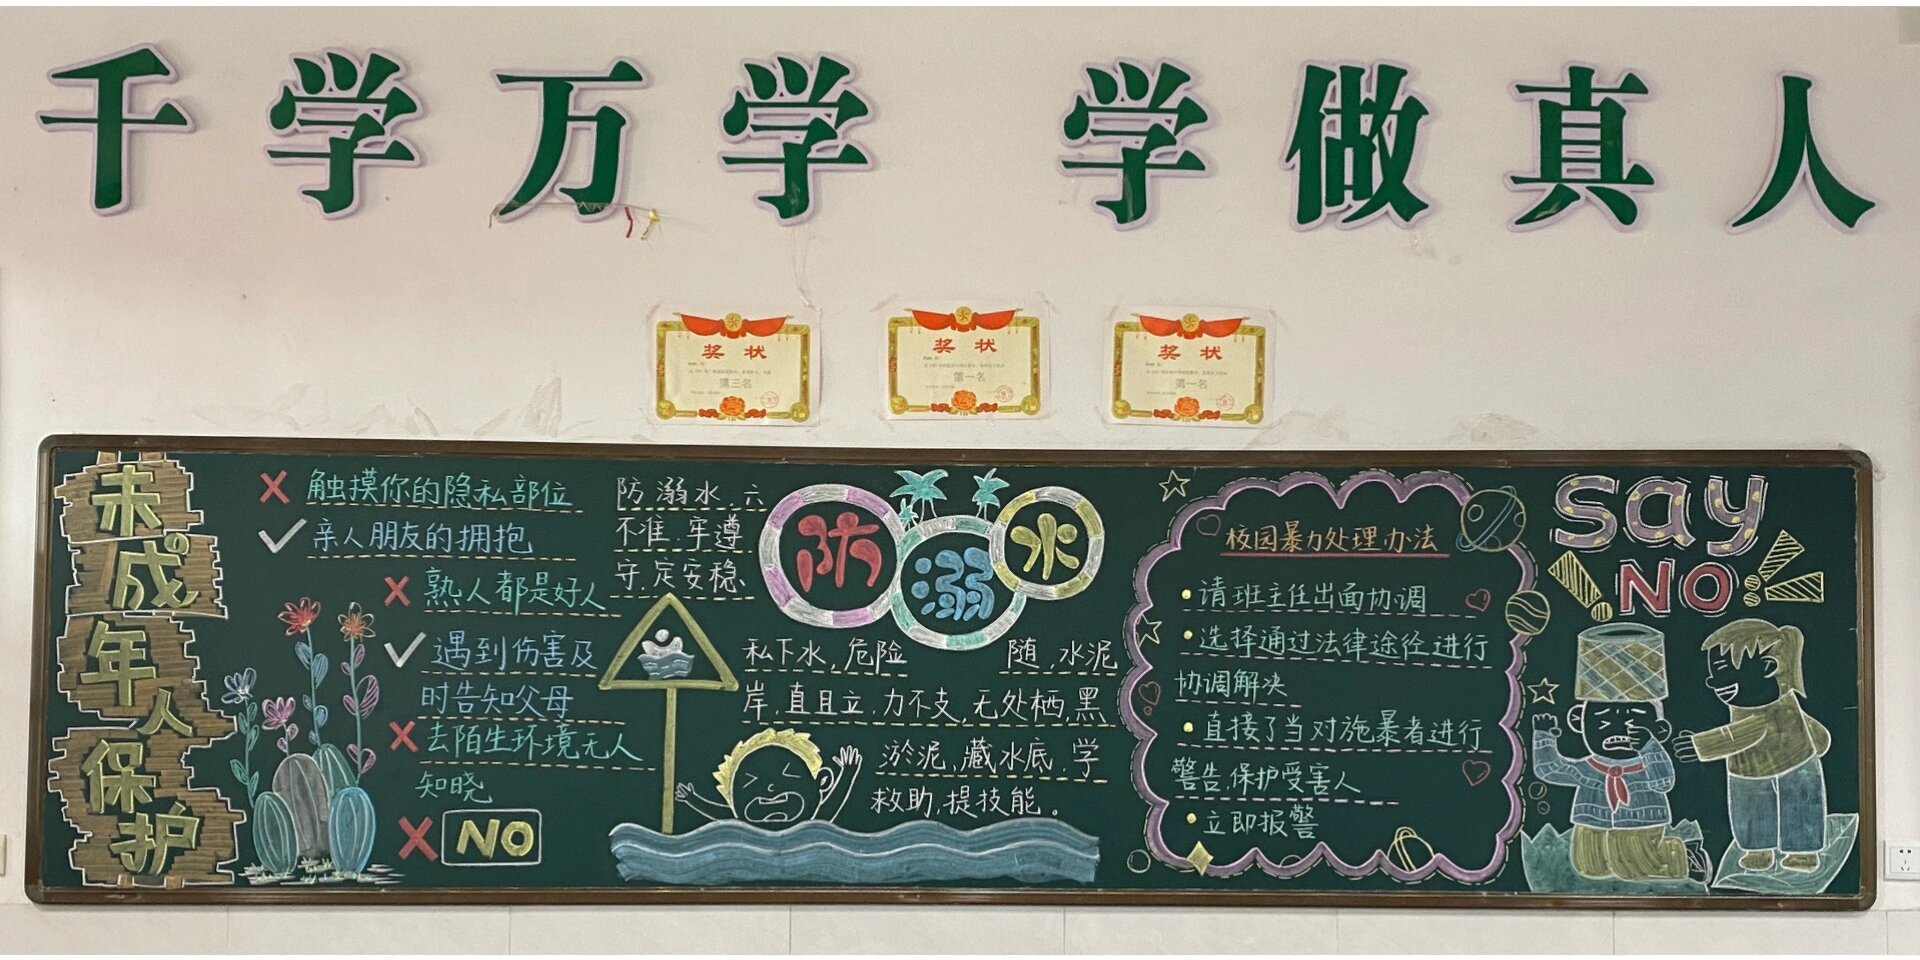 千学万学 学做真人
奖状
第三名
奖状
第一名
奖状
第一名
未成年人保护
触摸你的隐私部位
亲人朋友的拥抱
熟人都是好人
遇到伤害及
时告知父母
去陌生环境无人
知晓
NO
防溺水,六
不准.牢遵
守.定安稳、
防溺水
私下水,危险
随,水泥
岸,直且立.力不支,无处栖,黑
淤泥,藏水底.学
救助,提技能。
校园暴力处理办法
·请班主任出面协调
·选择通过法律途径进行
协调解决
·直接了当对施暴者进行
警告,保护受害人
·立即报警
say
NO!